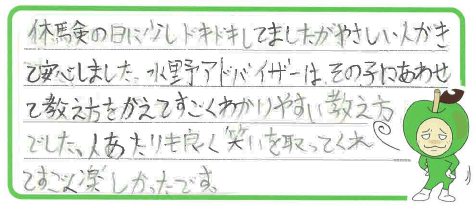 体験の日に少しドキドキしてましたがやさしい人がき
て安心しました。水野アドバイザーは、その子にあわせ
て教え方をかえてすごくわかりやすい教え方
でした。人あたりも良く笑いを取ってくれ
てすごく楽しかったです。